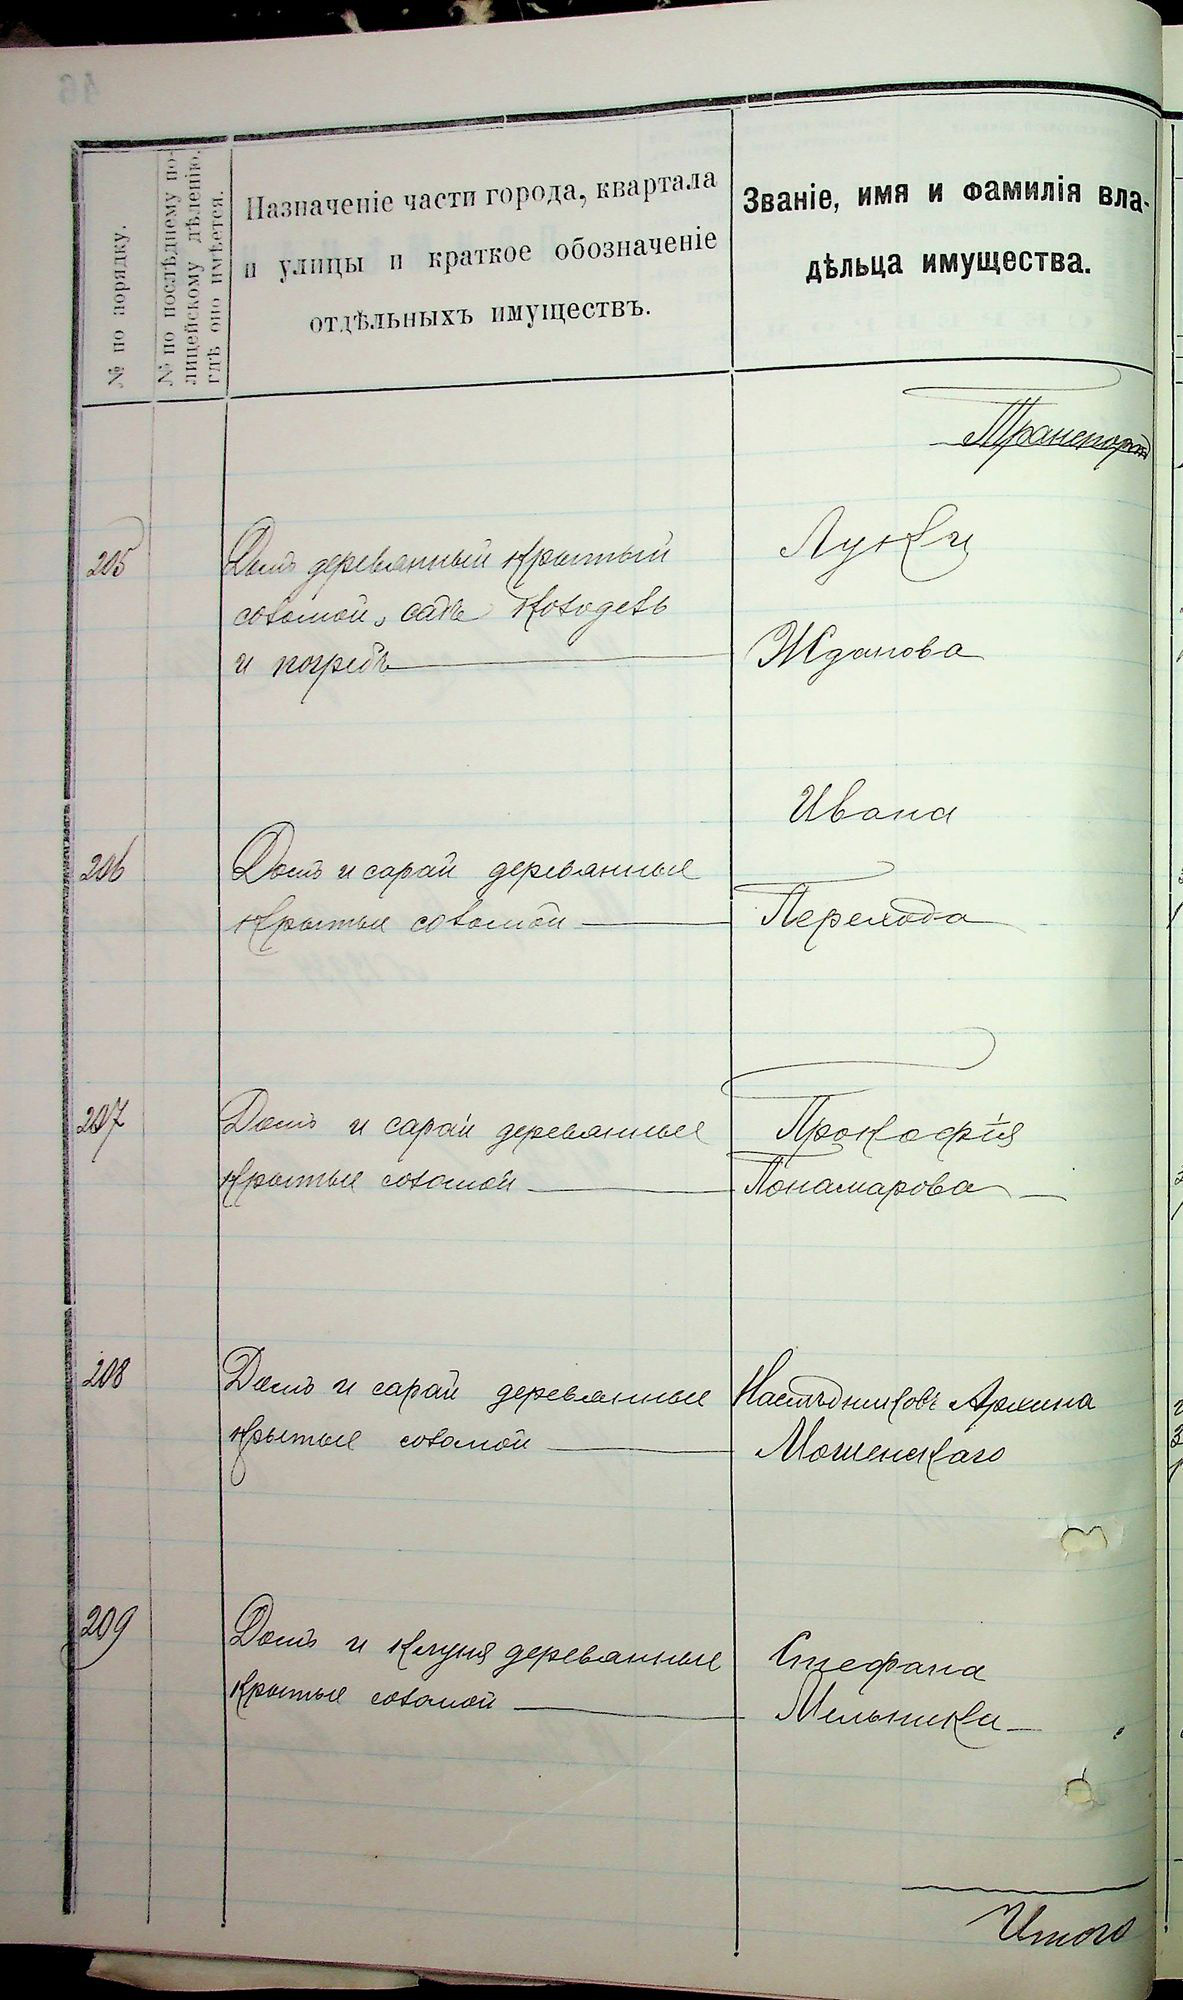 № по порядку.
№ по послѣднему по-
лицейскому дѣленію,
гдѣ оно имѣется.
Назначеніе части города, квартала
и улицы и краткое обозначеніе
отдѣльныхъ имуществъ.
Званіе, имя и фамилія вла-
дѣльца имущества.
Транспортъ
205
Домъ деревянный крытый
соломой, садъ колодезь
и погребъ
Луки
Жданова
206
Домъ и сарай деревянные
крытые соломой
Ивана
Перехода
207
Домъ и сарай деревянные
крытые соломой
Прокофія
Понамарова
208
Домъ и сарай деревянные
крытые соломой
Наслѣдниковъ Архипа
Мошенскаго
209
Домъ и клуня деревянные
крытые соломой
Стефана
Мельника
Итого